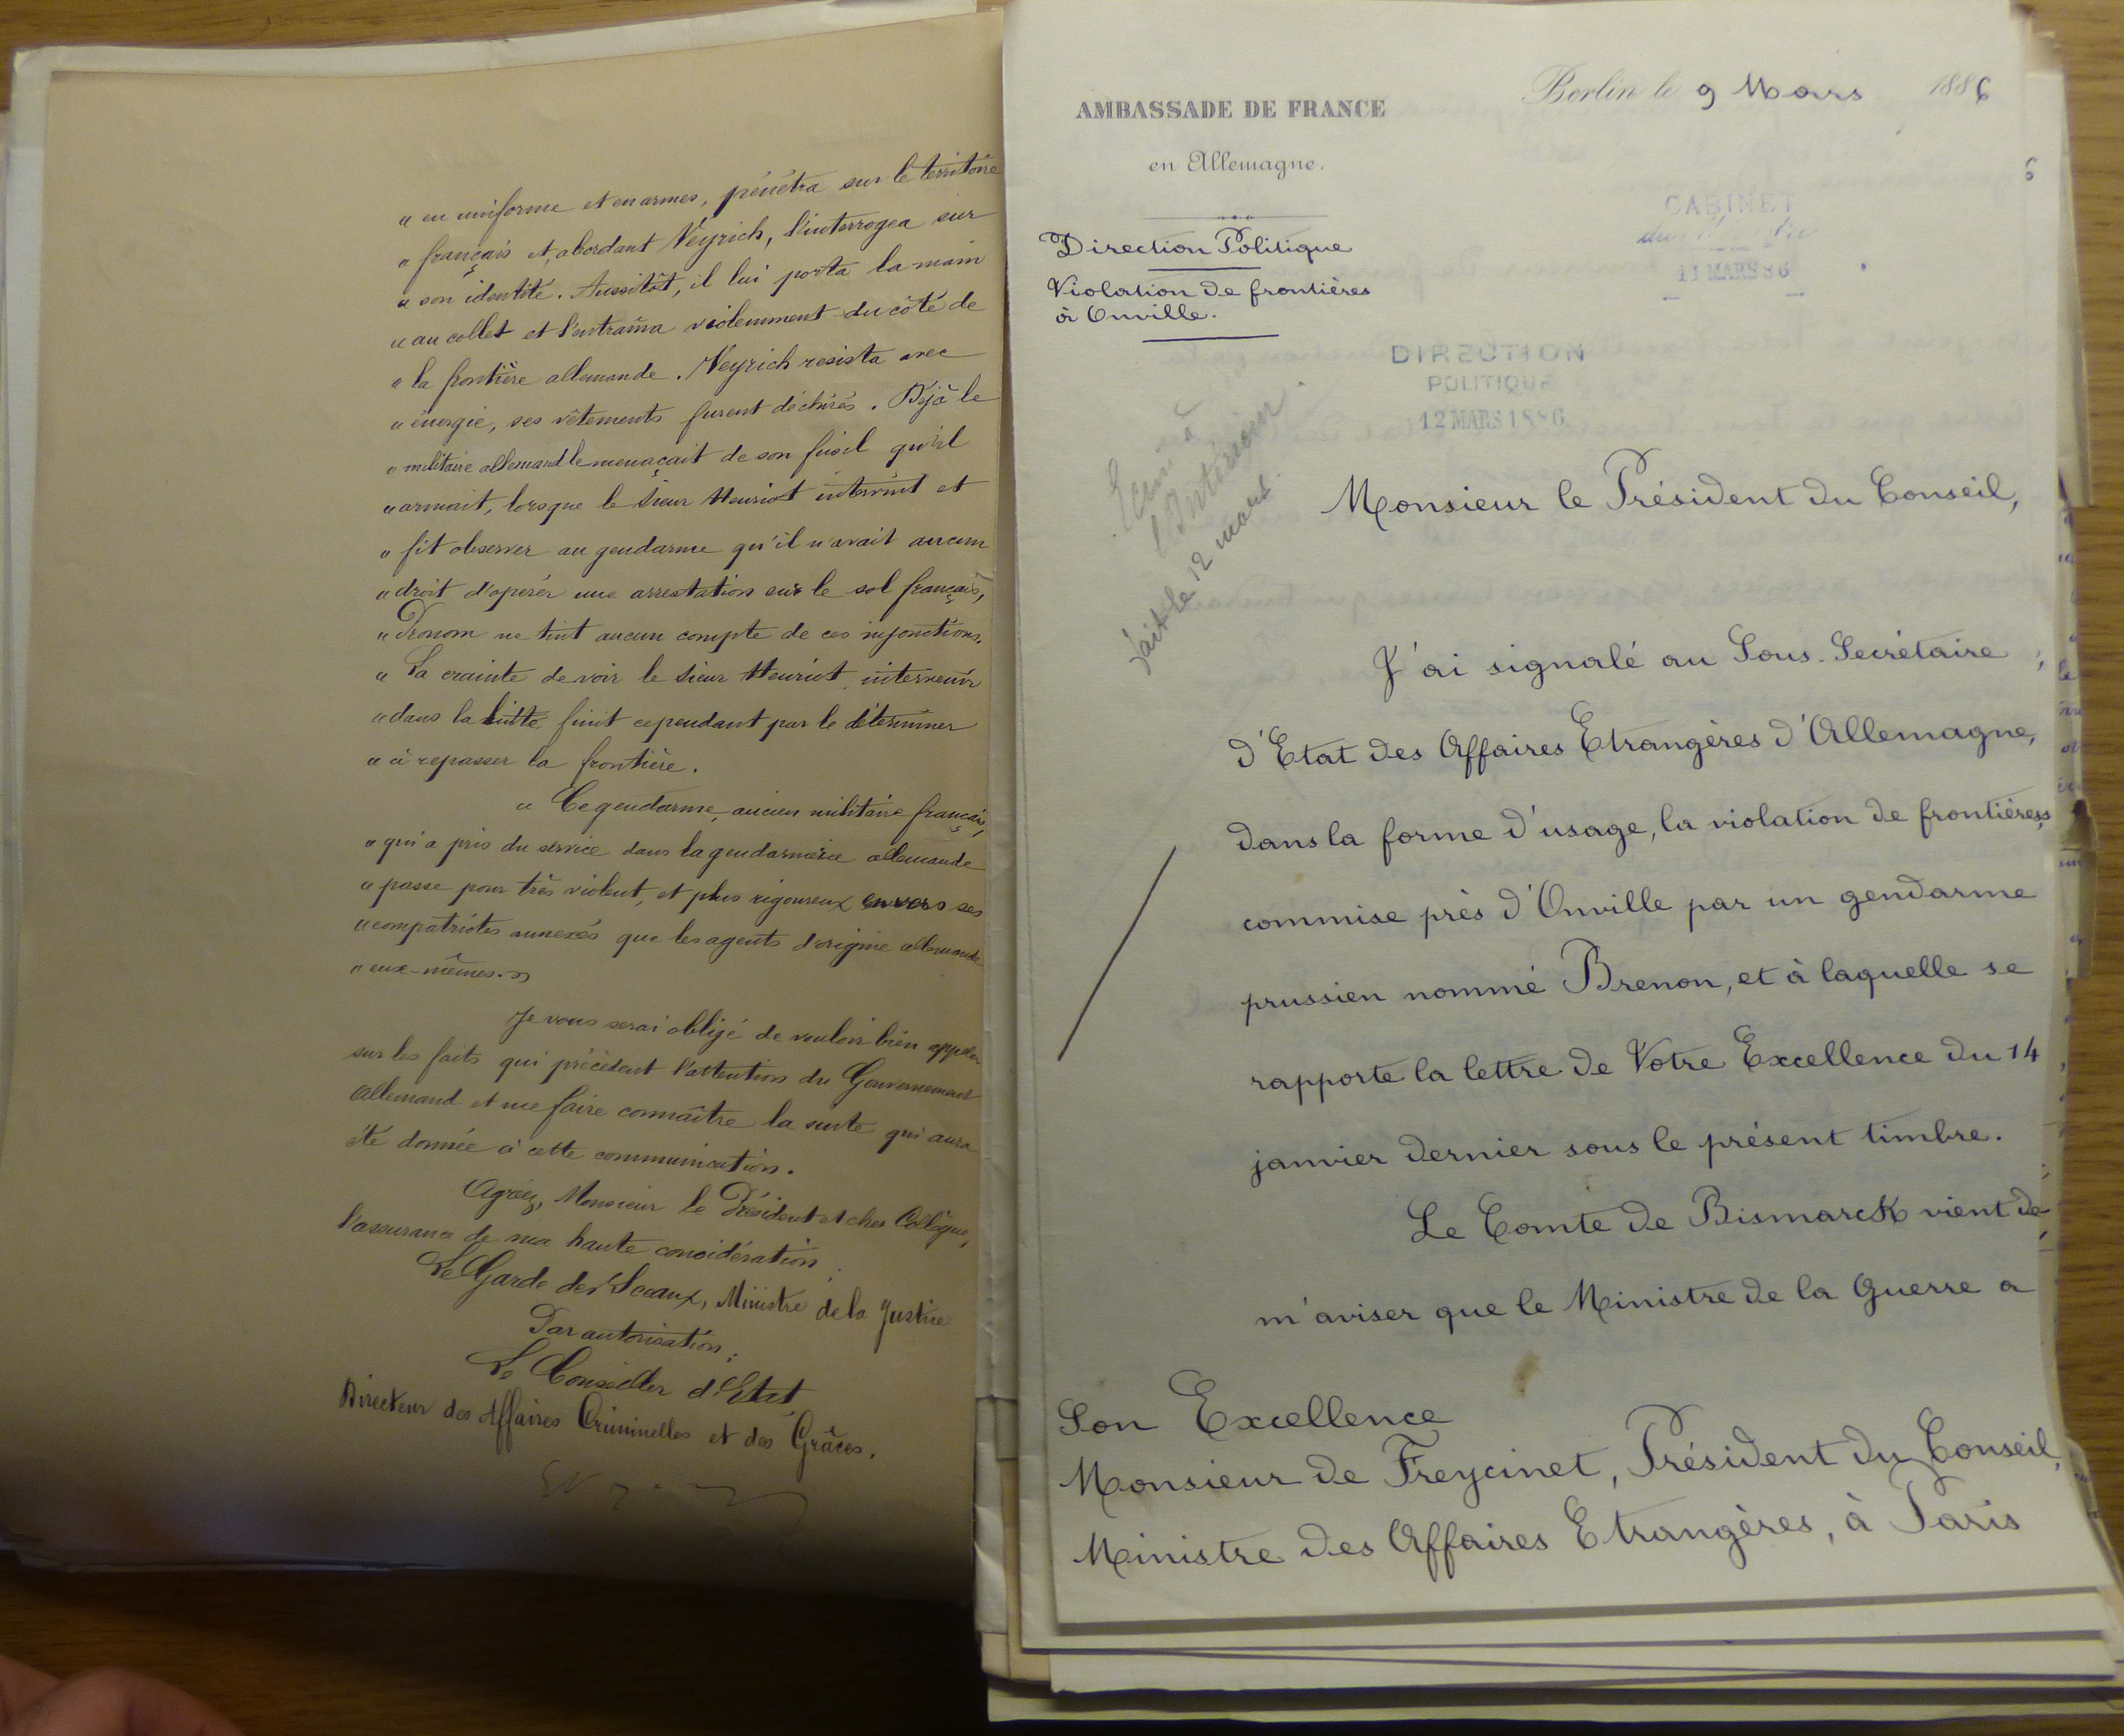 " en uniforme et en armes, pénétra sur le territoire
" français et, abordant Neyrich, l'interrogea sur
" son identité. Aussitôt, il lui porta la main
" au collet et l'entraîna violemment du côté de
" la frontière allemande. Neyrich resista avec
" énergie, ses vêtements furent déchirés. Déjà le
" militaire allemand le menaçait de son fusil qu'il
" armait, lorsque le sieur Henriot intervint et
" fit observer au gendarme qu'il n'avait aucun
" droit d'opérer une arrestation sur le sol français,
" Pronom ne tint aucun compte de ces injonctions.
" La crainte de voir le sieur Henriot intervenir
" dans la lutte finit cependant par le déterminer
" à repasser la frontière.
" Ce gendarme, ancien militaire français,
" qui a pris du service dans la gendarmerie allemande
" passe pour très violent, et plus rigoureux envers ses
" compatriotes annexés que les agents d'origine allemande
" eux-mêmes. "
Je vous serai obligé de vouloir bien appeler
sur les faits qui précèdent l'attention du Gouvernement
Allemand et me faire connaître la suite qui aura
été donnée à cette communication.
Agréez, Monsieur le Président et cher Collègue,
l'assurance de ma haute considération.
Le Garde des Sceaux, Ministre de la Justice
Par autorisation :
Le Conseiller d'Etat
Directeur des Affaires Criminelles et des Grâces.
AMBASSADE DE FRANCE
en Allemagne.
Berlin le 9 Mars 1886
6
Direction Politique
Violation de frontières
à Onville.
CABINET
11 MARS 86
DIRECTION
POLITIQUE
12 MARS 1886
à
l'Intérieur.
fait le 12 mars.
Monsieur le Président du Conseil,
J'ai signalé au Sous-Secrétaire
d'Etat des Affaires Etrangères d'Allemagne,
dans la forme d'usage, la violation de frontières,
commise près d'Onville par un gendarme
prussien nommé Brenon, et à laquelle se
rapporte la lettre de Votre Excellence du 14
janvier dernier sous le présent timbre.
Le Comte de Bismarck vient de
m'aviser que le Ministre de la Guerre a
Son Excellence
Monsieur de Freycinet, Président du Conseil,
Ministre des Affaires Etrangères, à Paris